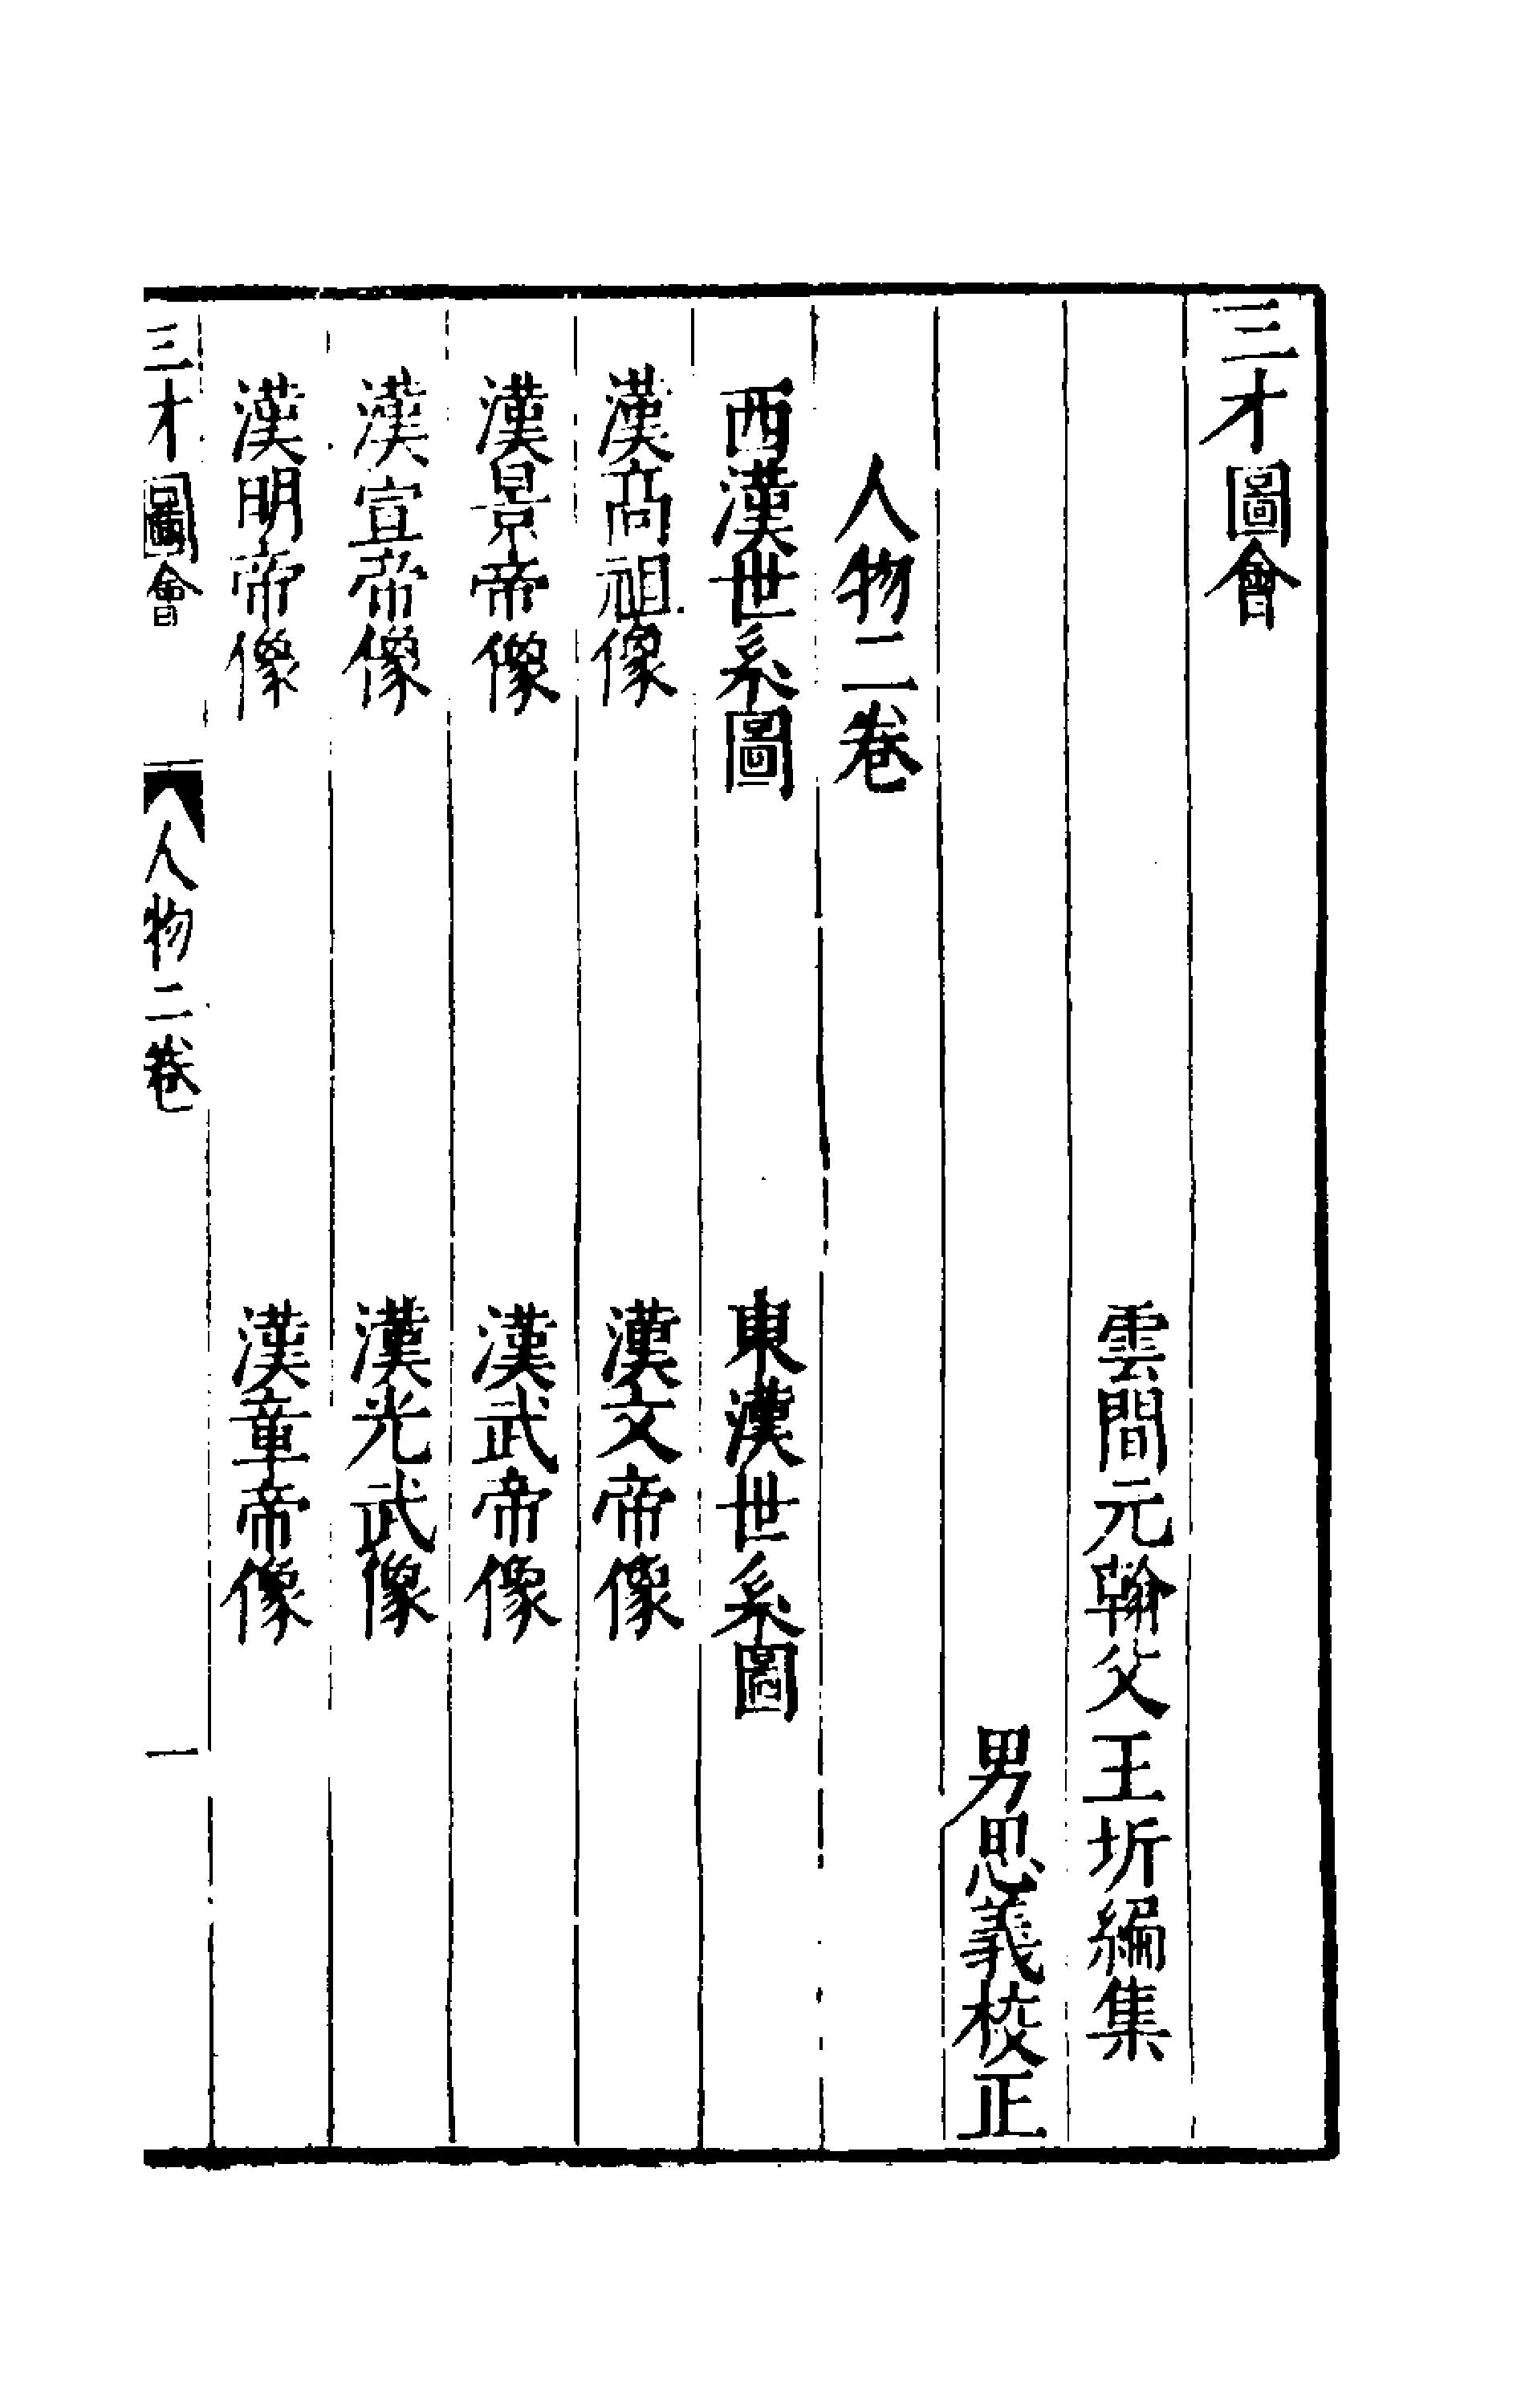 三才圖會
雲間元翰父王圻編集
男思義校正
人物二卷
西漢世系圖　東漢世系圖
漢高祖像　漢文帝像
漢景帝像　漢武帝像
漢宣帝像　漢光武像
漢明帝像　漢章帝像
三才圖會　人物二卷　一